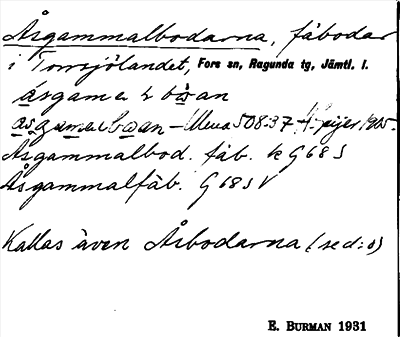 Åsgammalbodarna, fäbodar
i Torrsjölandet, Fors sn, Ragunda tg, Jämtl. l.
åsgamel bo̤an
åsgamelbo̤an – Ulma 508:37 H. Geijer 1905.
Åsgammalbod. fäb. k G 68 S
Åsgammalfäb. G 68 S V
Kallas även Åsbodarna (se d:o)
E. BURMAN 1931